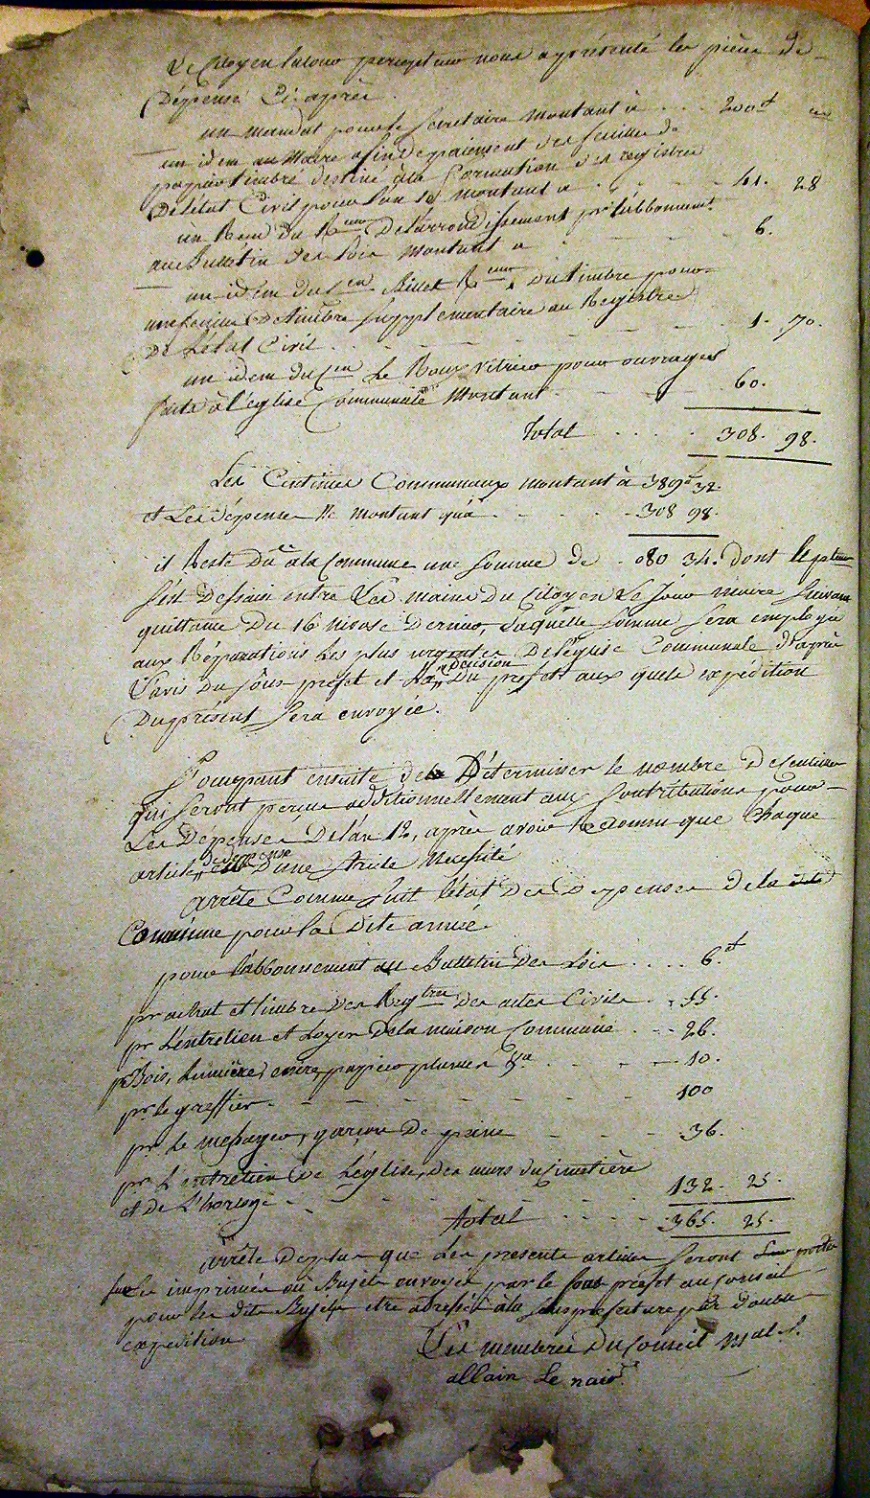 Le Citoyen percepteur nous a présenté les pièces de
Dépense Ci-après
un mandat pour le Secretaire montant à . . . 200 ₶
un idem au Maire afin de paiement des feuilles de
papier timbré destiné à la formation des registres
De l'état Civil pour l'an montant à . . . 41. 28
un Rem du De l'arrondissement pr l'abbonnement
au Bulletin des Lois montant à 6.
un idem du Cen Billet Reur du timbre pour
une feuille De timbre supplementaire au Registre
De l'état Civil . . . 1. 70.
un idem du Cen Le Roux vitrier pour ouvrages
faits à l'église Communale Montant . . . 60.
Total . . . . 308. 98.
Les Centimes Communaux montant à 389 ₶ 32.
et Les dépenses Ne montant qu'à . . . 308 98.
il Reste Dû à la Commune une somme de . 080 34. dont le
s'est Dessaisi entre Les mains du Citoyen Le maire suivant
quittance Du 16 nivose Dernier, Laquelle somme sera employée
aux Réparations les plus urgentes De l'église Communale D'après
L'avis Du sous prefet et la Décision Du prefet aux quels expédition
Du présent sera envoyée.
S'occupant ensuite de Déterminer le nombre De Centimes
qui seront perçus additionnellement aux Contributions pour
Les Dépenses De l'an 12, après avoir Reconnu que Chaque
article de dépense est D'une stricte nécessité
arrête Comme suit l'état Des Depenses de la
Commune pour la Dite année
pour l'abbonnement au Bulletin Des Lois . . . . 6.₶
pr achat et timbre Des Registres Des actes Civils . . 55.
pr L'entretien et Loyer De la maison Commune . . . 26.
pr Bois, Lumière, encre, papier plumes &a . . . 10.
pr le greffier . . . 100
pr Le messager, garçon De peine . . . 36.
pr L'entretien De L'église, des murs du Cimetière
et de L'horloge . . . 132. 25.
Total . . . . 365. 25.
arrête De plus que Les presents articles seront portés
sur Les imprimés de Bujets envoyés par le sous prefet au Conseil
pour les dits Bujets etre adressés à la sous prefecture par double
expedition
Les membres Du Conseil Mal.
allain Le nair